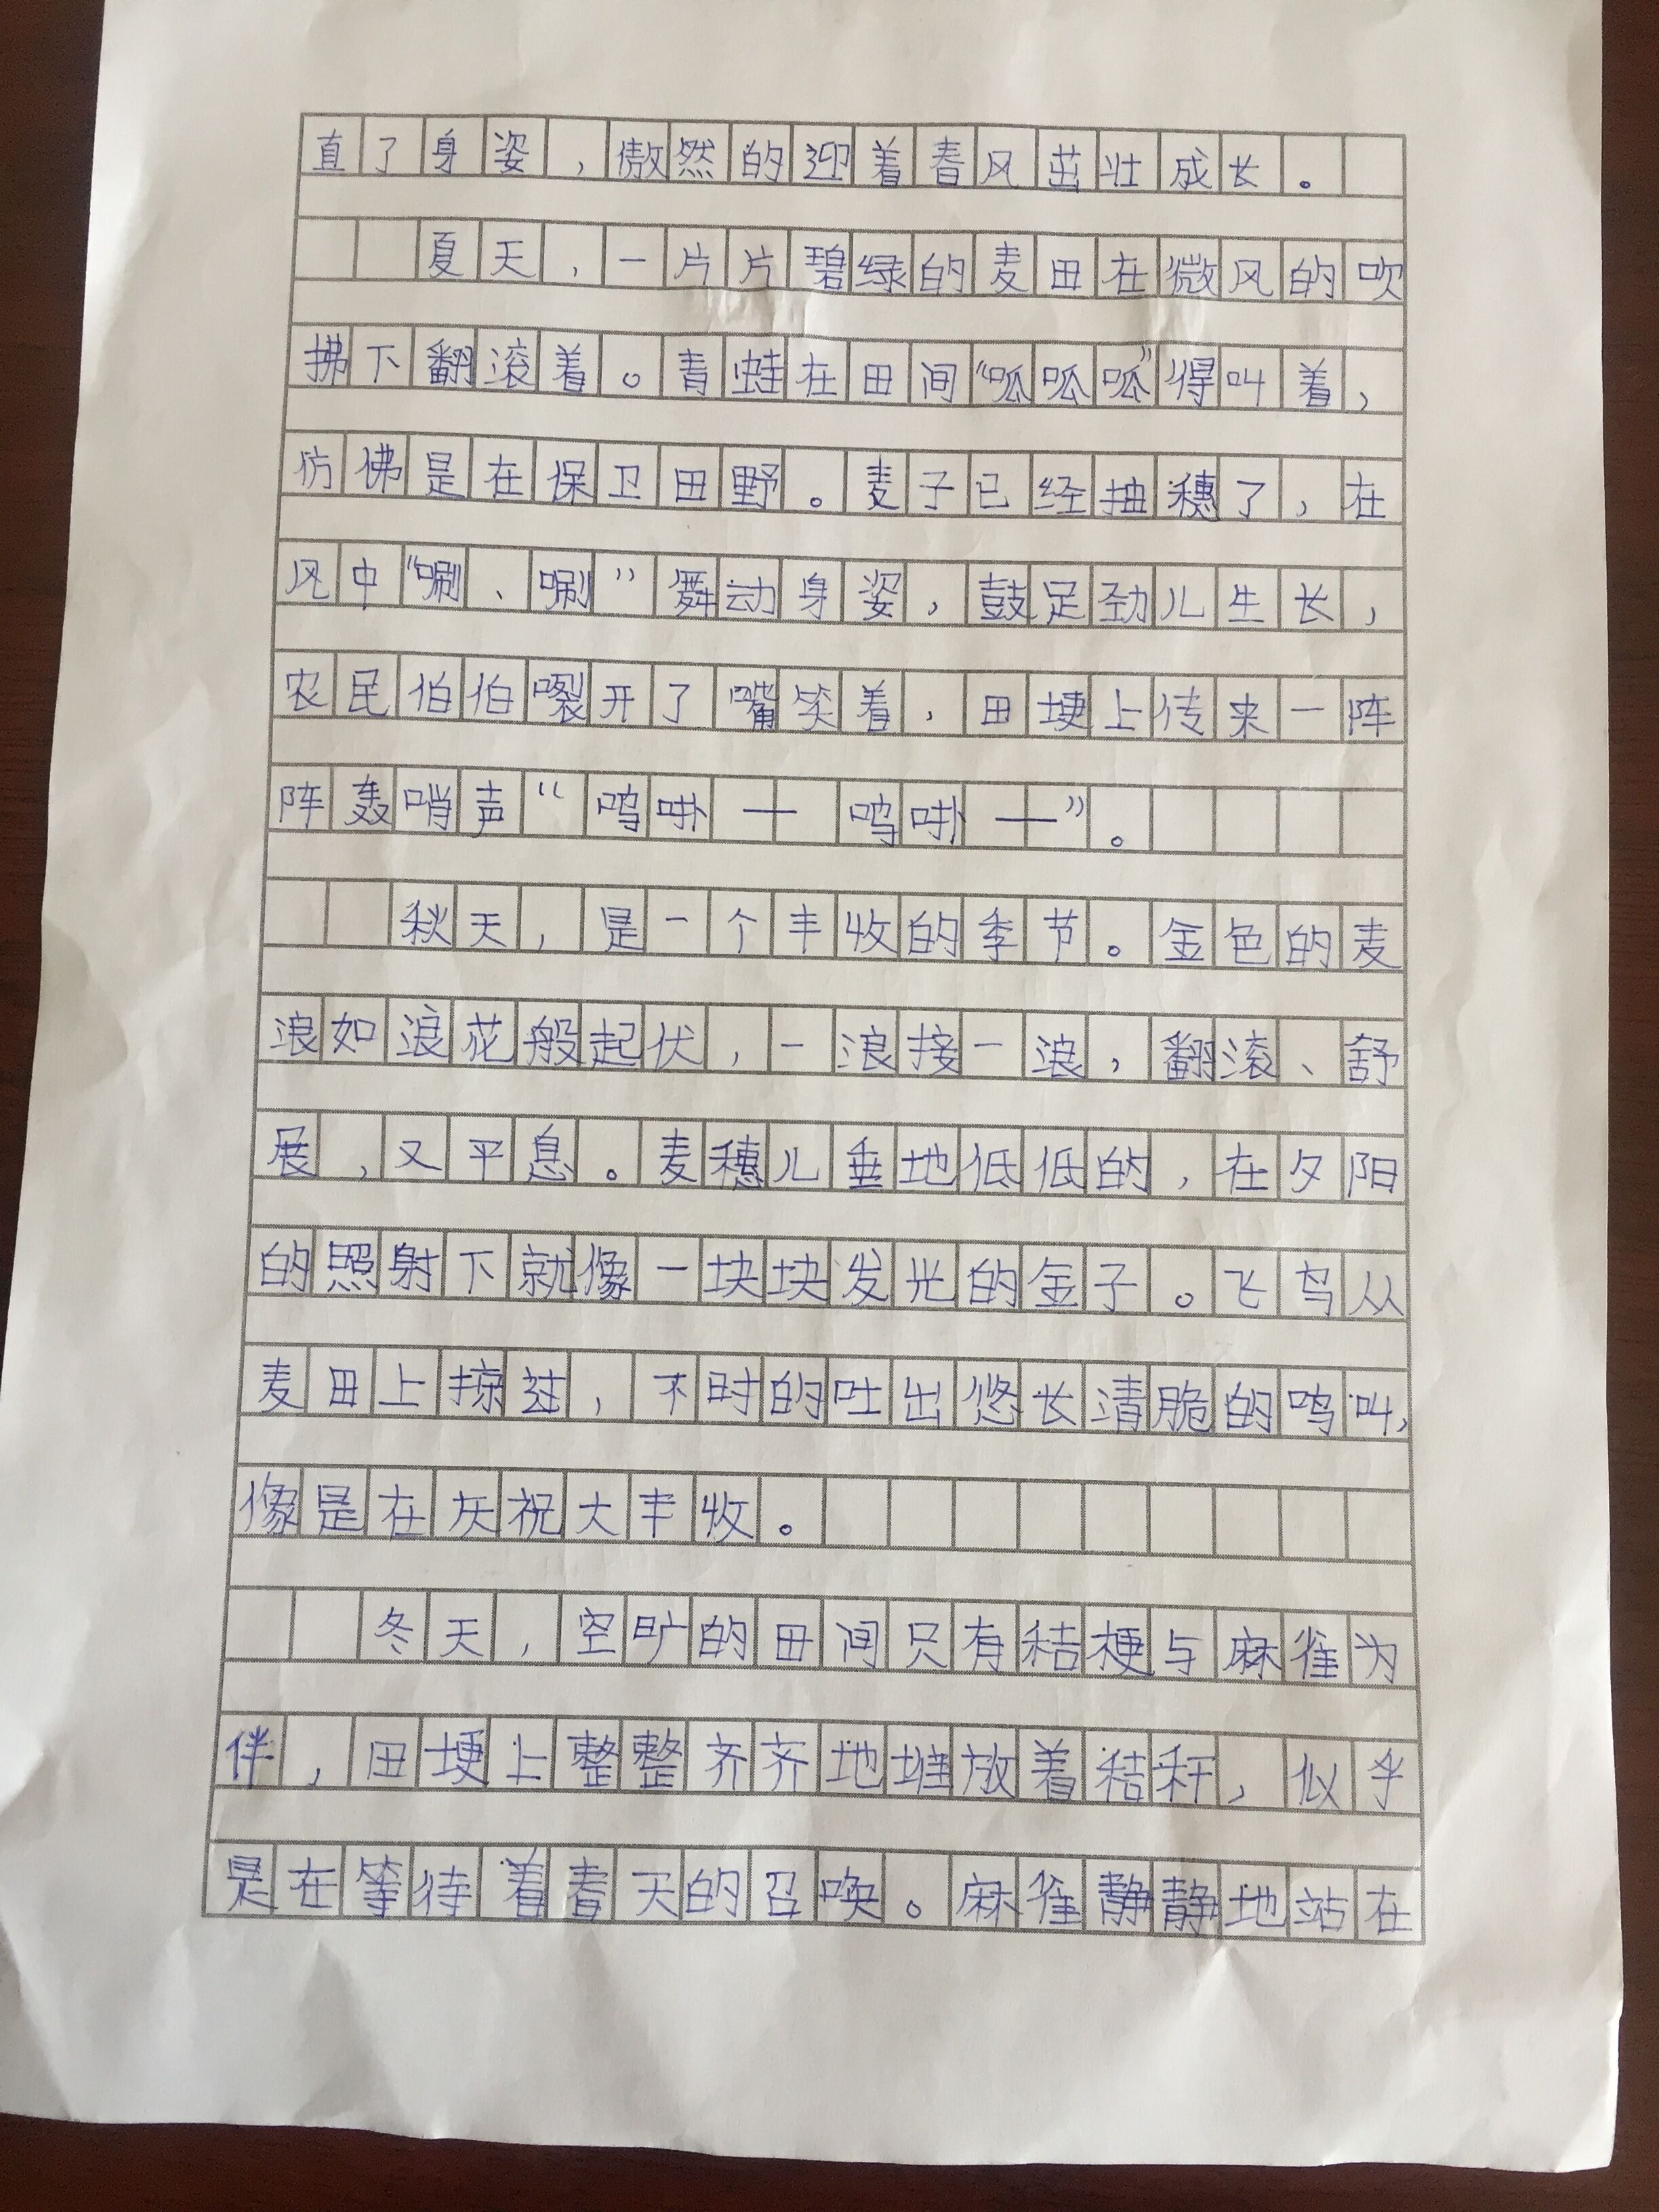 直了身姿，傲然的迎着春风茁壮成长。
夏天，一片片碧绿的麦田在微风的吹
拂下翻滚着。青蛙在田间“呱呱呱”得叫着，
仿佛是在保卫田野。麦子已经抽穗了，在
风中“唰、唰”舞动身姿，鼓足劲儿生长，
农民伯伯嘞开了嘴笑着，田埂上传来一阵
阵轰哨声“呜哦——呜哦——”。
秋天，是一个丰收的季节。金色的麦
浪如浪花般起伏，一浪接一浪，翻滚、舒
展，又平息。麦穗儿垂地低低的，在夕阳
的照射下就像一块块发光的金子。飞鸟从
麦田上掠过，不时的吐出悠长清脆的鸣叫，
像是在庆祝大丰收。
冬天，空旷的田间只有秸梗与麻雀为
伴，田埂上整整齐齐地堆放着秸秆，似乎
是在等待着春天的召唤。麻雀静静地站在